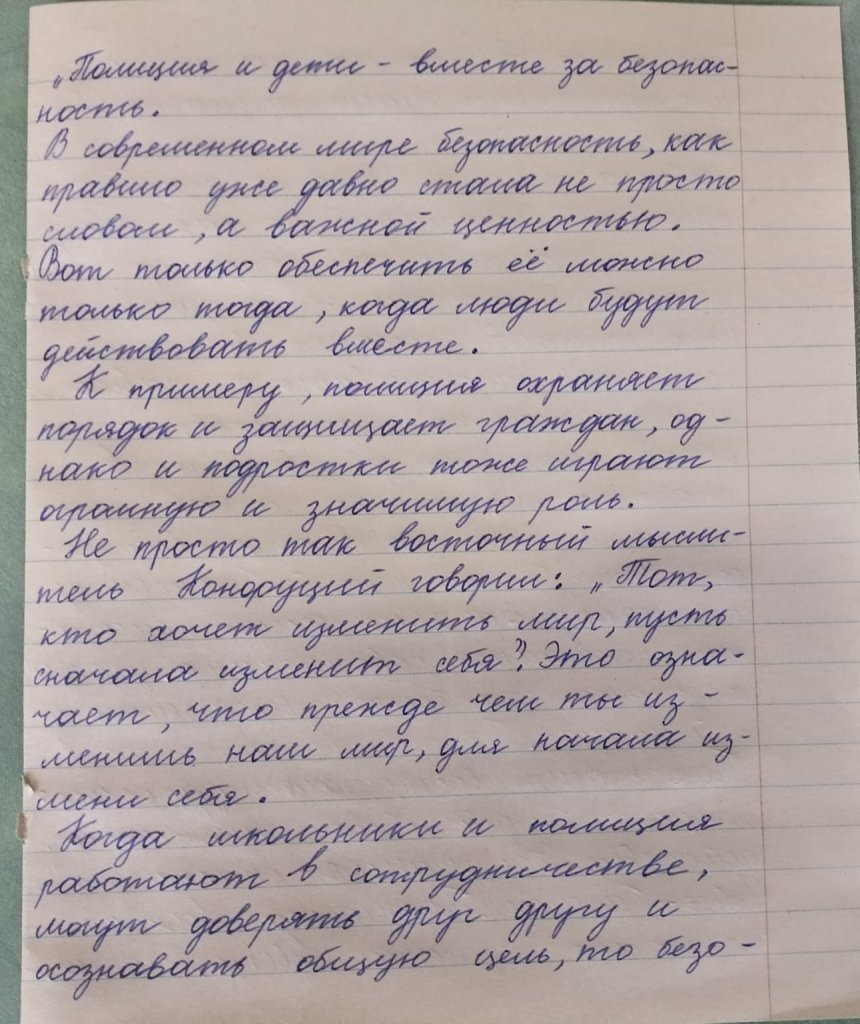 „Полиция и дети – вместе за безопас-
ность.
В современном мире безопасность, как
правило уже давно стала не просто
словом, а важной ценностью.
Вот только обеспечить её можно
только тогда, когда люди будут
действовать вместе.
К примеру, полиция охраняет
порядок и защищает граждан, од-
нако и подростки тоже играют
огромную и значимую роль.
Не просто так восточный мысли-
тель Конфуций говорил: „Тот,
кто хочет изменить мир, пусть
сначала изменит себя". Это озна-
чает, что прежде чем ты из-
менишь наш мир, для начала из-
мени себя.
Когда школьники и полиция
работают в сотрудничестве,
могут доверять друг другу и
осознавать общую цель, то безо-